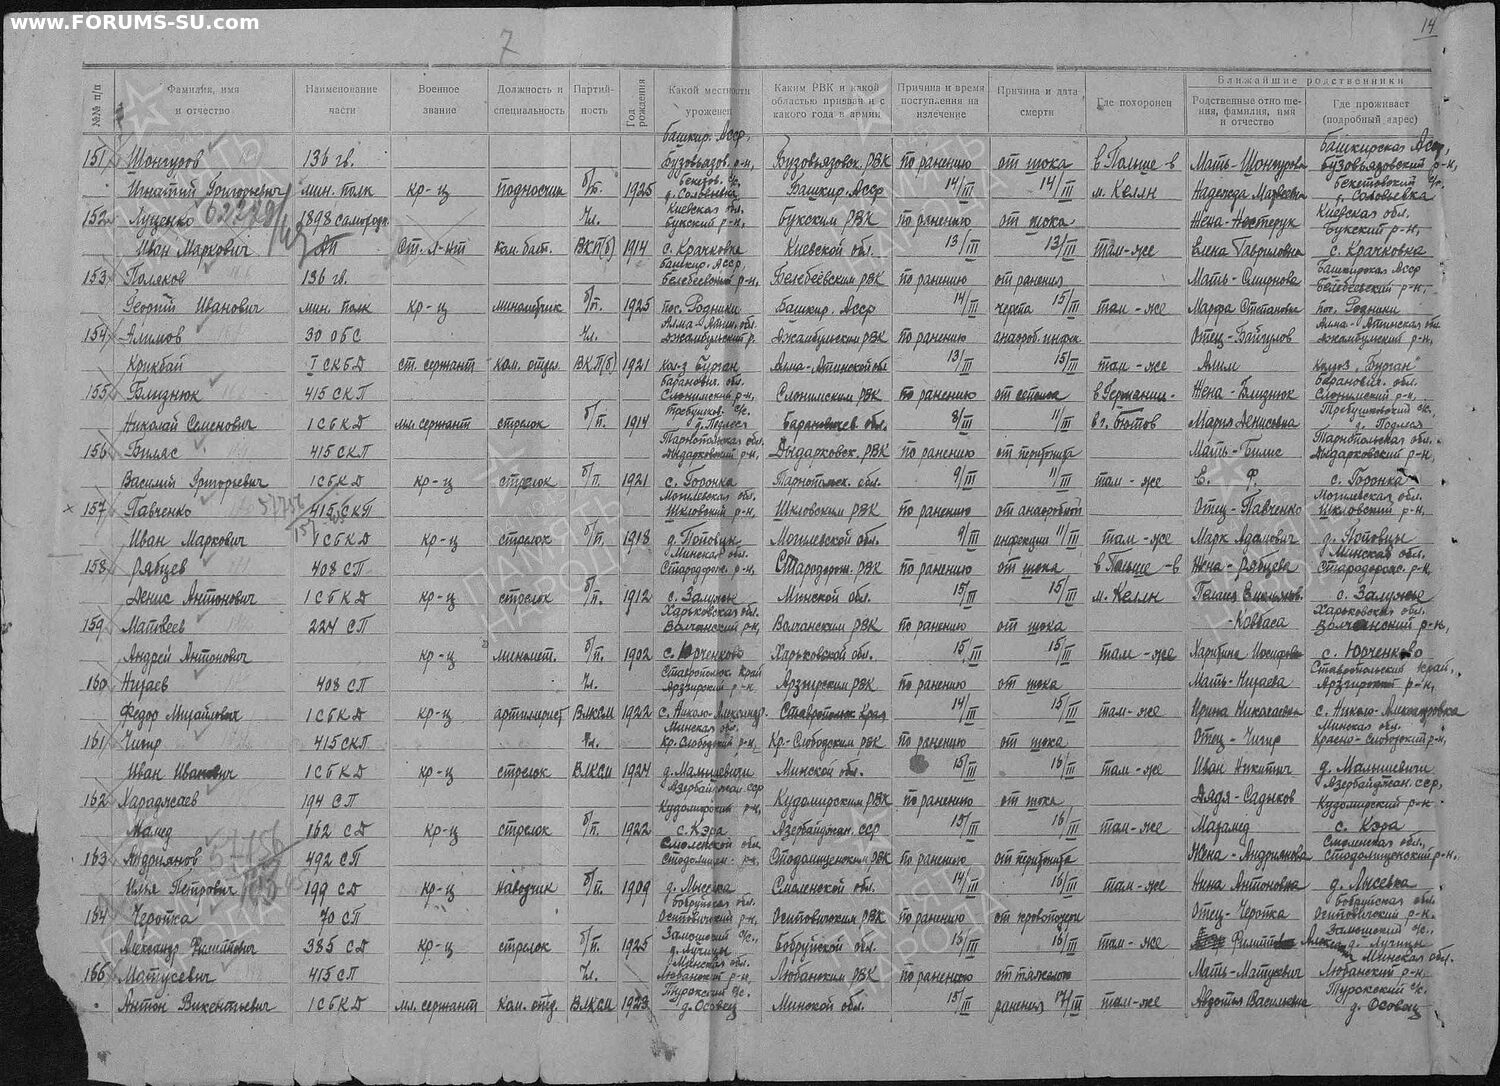 www.FORUMS-SU.com
7
14
№№ п/п Фамилия, имя и отчество Наименование части Военное звание Должность и специальность Партийность Год рождения Какой местности уроженец Каким РВК и какой областью призван и с какого года в армии Причина и время поступления на излечение Причина и дата смерти Где похоронен Ближайшие родственники
Родственные отношения, фамилия, имя и отчество Где проживает (подробный адрес)
Башкир. Асср, Башкирская Асср,
151 Шонгуров 136 гв. Бузовьязов. р-н, Бузовьязовск. РВК по ранению от шока в Польше-в Мать-Шонгурова Бузовьязовский р-н,
Игнатий Григорьевич мин. полк кр-ц подносчик б/п. 1925 Бекетов. с/с. д. Соловьевка Башкир. Асср 14/III 14/III м. Келлн Надежда Марковна Бекетовский с/с. д. Соловьевка
152 Луценко 1898 самоходн. Чл. Киевская обл. Букский р-н, Букским РВК по ранению от шока Жена-Нестерук Киевская обл. Букский р-н,
Иван Маркович АП Ст. л-нт ком. бат. ВКП(б) 1914 с. Крачковка Киевской обл. 13/III 13/III там-же Елена Гавриловна с. Крачковка
153 Поляков 136 гв. Башкир. Асср, Белебеевский р-н, Белебеевским РВК по ранению от ранения Мать-Смирнова Башкирская Асср Белебеевский р-н,
Георгий Иванович мин. полк кр-ц минометчик б/п. 1925 пос. Родники Башкир. Асср 14/III черепа 15/III там-же Марфа Степановна пос. Родники
154 Алимов 30 ОБС Чл. Алма-Атин. обл. Джамбульский р. Джамбульским РВК по ранению анаэроб. инфек. Отец-Байгулов Алма-Атинская обл. Джамбулский р-н,
Крикбай I СКБД ст. сержант ком. отдел. ВКП(б) 1921 кол-з Бурган Алма-Атинской обл 13/III 15/III там-же Алим колхоз „Бурган"
155 Близнюк 415 СКП Баранович. обл. Слонимский р-н, Слонимским РВК по ранению от сепсиса в Германии- Жена-Близнюк Баранович. обл. Слонимский р-н,
Николай Семенович 1 СБКД мл. сержант стрелок б/п. 1914 д. Подлесл Баранович обл. 8/III 11/III в г. Бютов Мария Денисовна д. Подлесл
156 Билас 415 СКП Тарнопольская обл. Дыдарковский р-н, Дыдарковск. РВК по ранению от перитонита Мать-Билис Тарнопольская обл. Дыдарковский р-н,
Василий Григорьевич 1 СБКД кр-ц стрелок б/п. 1921 с. Горонка Тарнопольск. обл. 9/III 11/III там-же Е. Ф. с. Горонка
157 Павченко 57756 415 СКП Могилевская обл. Шкловский р-н, Шкловским РВК по ранению от анаэробной Отец-Павченко Могилевская обл. Шкловский р-н,
Иван Маркович 1 СБКД кр-ц стрелок б/п. 1918 д. Поповцы Могилевской обл. 9/III инфекции 11/III там-же Марк Адамович д. Поповцы
158 Рябцев 408 СП Минская обл. Стародорож. р-н, Стародорож. РВК по ранению от шока в Польше-в Жена-Рябцева Минская обл. Стародорожс. р-н,
Денис Антонович 1 СБКД кр-ц стрелок б/п. 1912 с. Залужье Минской обл. 15/III 15/III м. Келлн с. Залужье
159 Матвеев 224 СП Харьковская обл. Волчанский р-н, Волчанским РВК по ранению от шока -Ковбаса Харьковская обл. Волчанский р-н,
Андрей Антонович кр-ц миномет. б/п. 1902 с. Юрченково Харьковской обл. 15/III 15/III там-же Харитина Иосифовна с. Юрченково
160 Низаев 408 СП Чл. Ставрополюк. Край Арзгирский р-н, Арзгирским РВК по ранению от шока Мать-Низаева Ставропольский край, Арзгирский р-н,
Федор Михайлович 1 СБКД кр-ц артиллерист ВЛКСМ 1922 с. Николо-Александр. Ставрополск Края 14/III 15/III там-же Ирина Николаевна с. Николо-Александровка
161 Чигир 415 СКП Чл. Минская обл. Кр.-Слободский р-н, Кр.-Слободским РВК по ранению от шока Отец-Чигир Минская обл. Красно-Слободский р-н,
Иван Иванович 1 СБКД кр-ц стрелок ВЛКСМ 1924 д. Малышевичи Минской обл. 15/III 16/III там-же Иван Никитич д. Малышевичи
162 Хараджаев 194 СП Азербайджан. сср Кудомирский р-н, Кудомирским РВК по ранению от шока Дядя-Садыков Азербайджан. сср, Кудомирский р-н
Мамед 162 СД кр-ц стрелок б/п. 1922 с. Кэра Азербайджан. сср 15/III 16/III там-же Магамед с. Кэра
163 Андриянов 57756 492 СП Смоленской обл Стодолищен. р-н, Стодолищенским РВК по ранению от перитонита Жена-Андриянова Смоленская обл, Стодолищенский р-н.
Илья Петрович 199 СД кр-ц наводчик б/п. 1909 д. Лысевка Смоленской обл. 14/III 16/III там-же Нина Антоновна д. Лысевка
164 Черопка 70 СП Бобруйская обл. Осиповичский р-н, Осиповичским РВК по ранению от кровопотери Отец-Черопка Бобруйская обл. Осиповичский р-н,
Александр Филиппович 385 СД кр-ц стрелок б/п. 1925 Замошский с/с., д. Лучицы Бобруйской обл. 16/III 16/III там-же Филипп Замошский с/с., д. Лучицы
166 Матусевич 415 СП Чл. Минская обл. Любанский р-н, Любанским РВК по ранению от тяжелого Мать-Матусевич Минская обл. Любанский р-н,
Антон Викентьевич 1 СБКД мл. сержант ком. отд. ВЛКСМ 1923 Турокский с/с. д. Осовец Минской обл. 15/III ранения 17/III там-же Авдотья Васильевна Турокский с/с. д. Осовец
ПАМЯТЬ НАРОДА